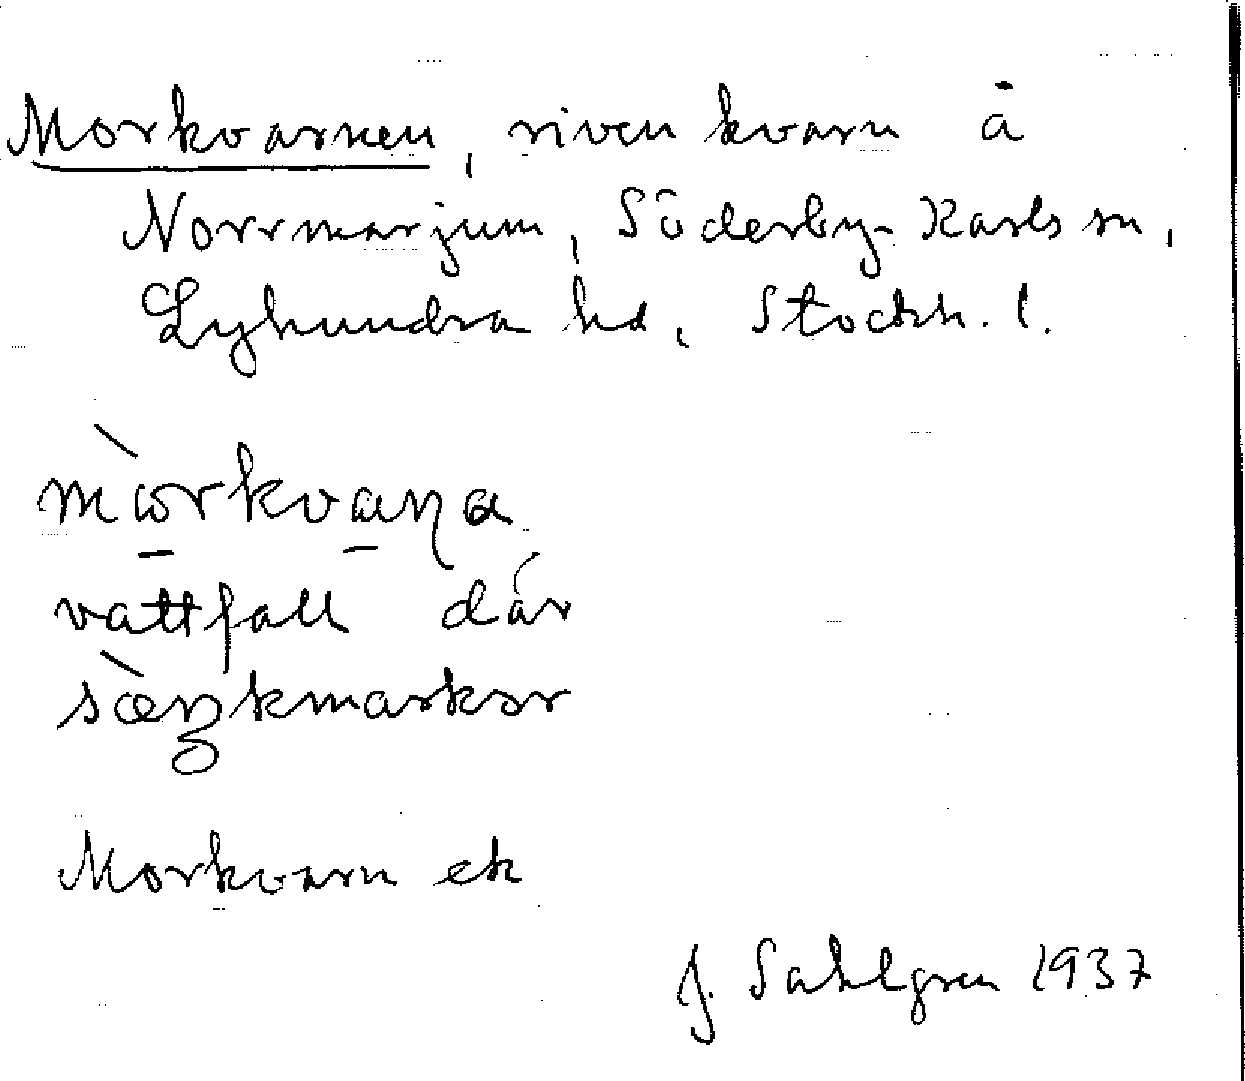 Morkvarnen, riven kvarn å
Norrmarjum, Söderby-Karls sn,
Lyhundra hd, Stockh. l.
mòrkvaṇa
vattfall där
sæŋkmarkər
Morkvarn ek
J. Sahlgren 1937